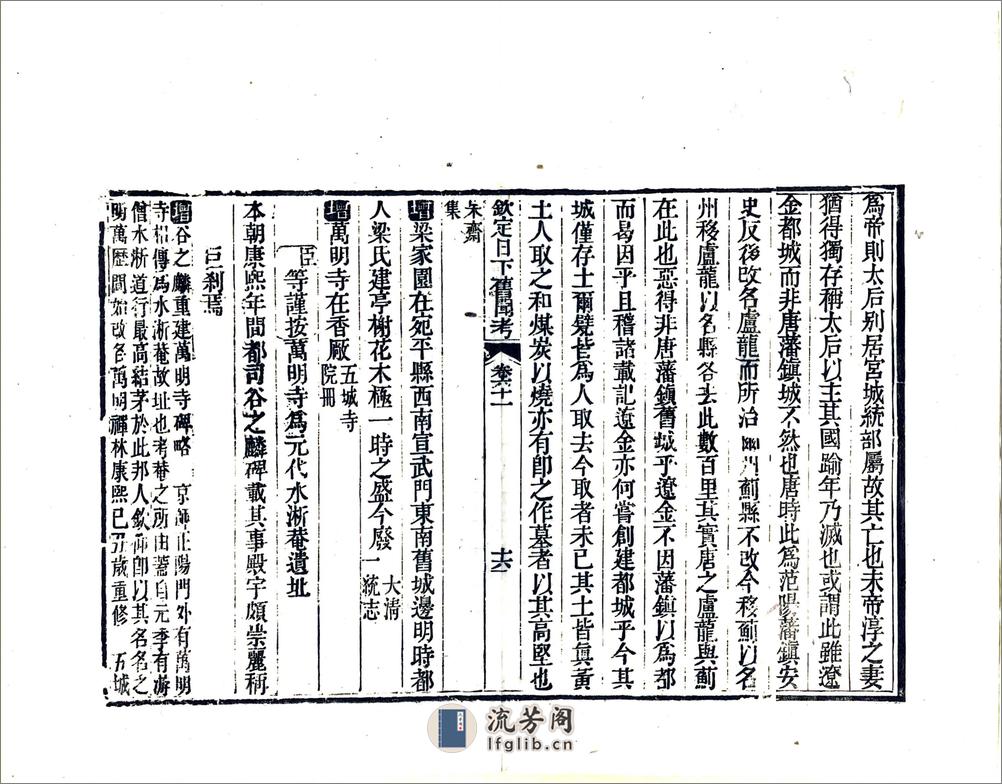 爲帝則太后别居宮城統部屬故其亡也末帝淳之妻
猶得獨存稱太后以主其國踰年乃滅也或謂此雖遼
金都城而非唐藩鎮城不然也唐時此爲范陽藩鎮安
史反後改名盧龍而所治幽州薊縣不改今移薊以名
州移盧龍以名縣各去此數百里其實唐之盧龍與薊
在此也惡得非唐藩鎮舊城乎遼金不因藩鎮以爲都
而曷因乎且稽諸載記遼金亦何嘗創建都城乎今其
城僅存土爾甓皆爲人取去今取者未已其土皆眞黃
土人取之和煤炭以燒亦有卽之作墓者以其高堅也
朱齋
集
欽定日下舊聞考 卷六十一 十六
增梁家園在宛平縣西南宣武門東南舊城邊明時都
人梁氏建亭榭花木極一時之盛今廢 大淸
一統志
增萬明寺在香厰 五城寺
院冊
臣等謹按萬明寺爲元代水淅菴遺址
本朝康熙年間都司谷之麟碑載其事殿宇頗崇麗稱
巨刹焉
增谷之麟重建萬明寺碑略 京師正陽門外有萬明
寺相傳爲水淅菴故址也考菴之所由蓋自元季有游
僧水淅道行最高結茅於此邦人欽仰卽以其名名之
明萬歷間始改名萬明禪林康熙己丑歲重修 五城
流芳阁
lfglib.cn